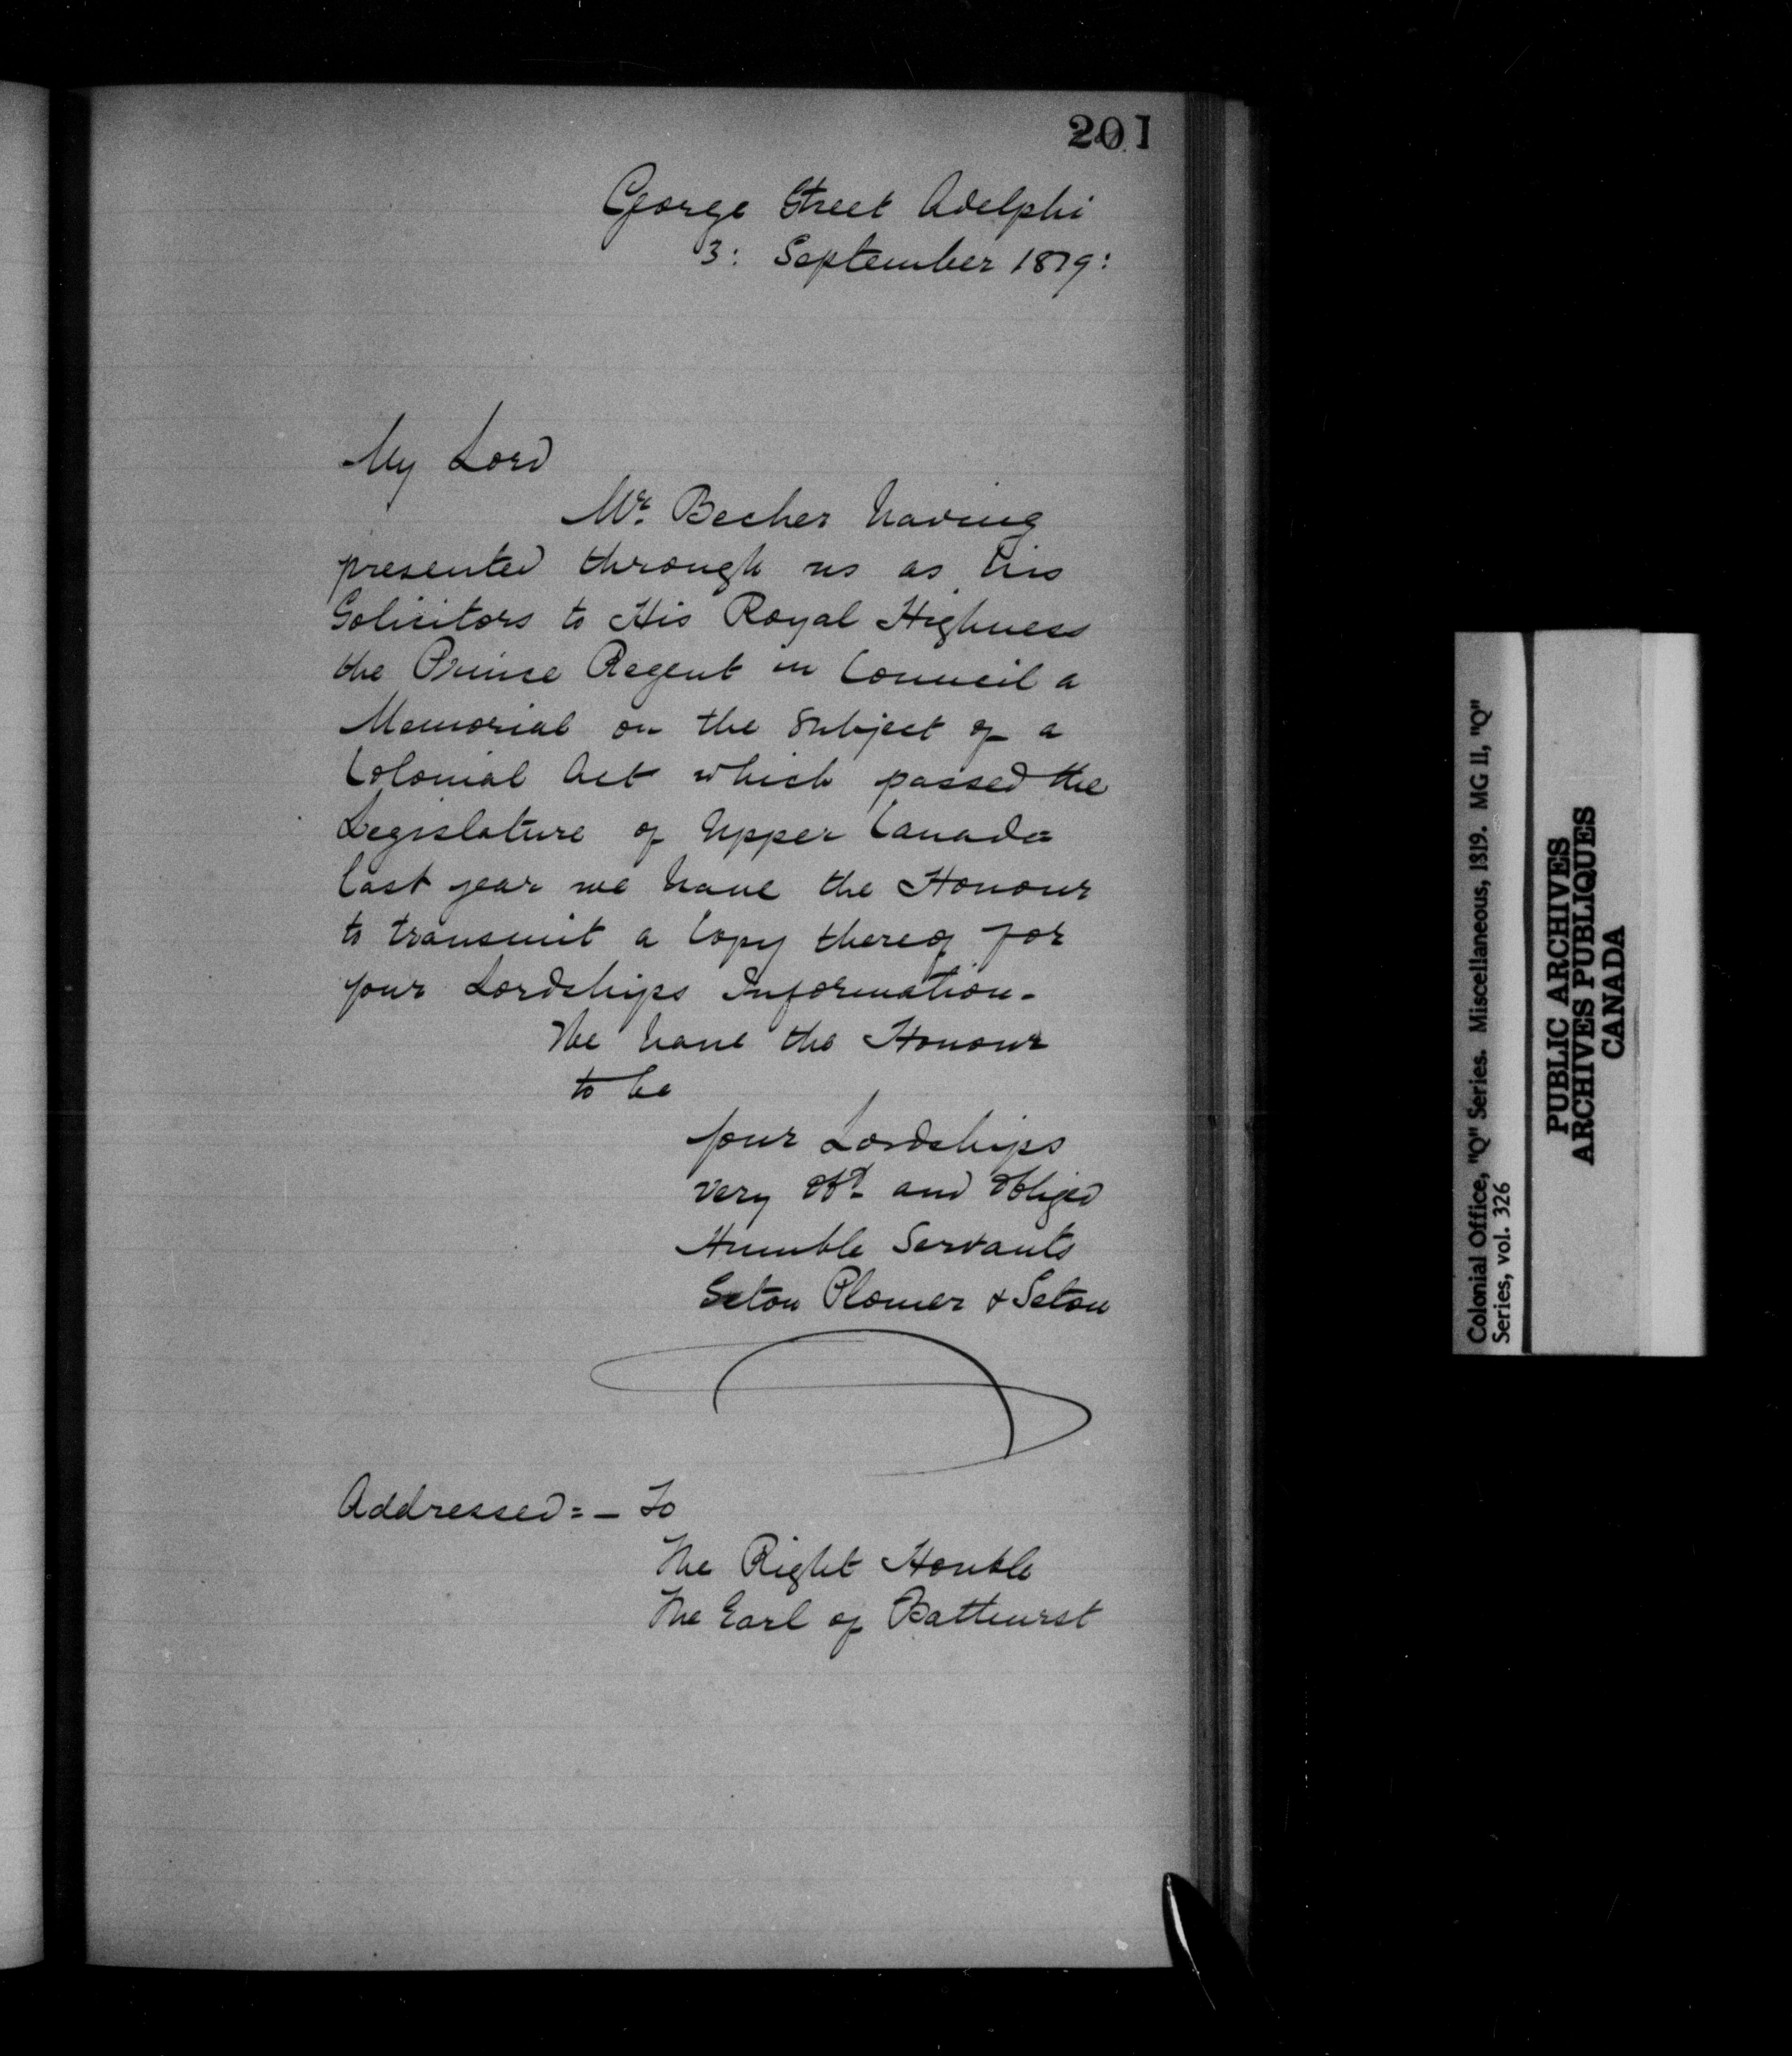 201
George Street Adelphi
3: September 1819:
My Lord
Mr. Becher having
presented through us as his
Solicitors to His Royal Highness
the Prince Regent in Council a
Memorial on the Subject of a
Colonial Act which passed the
Legislature of Upper Canada
last year we have the Honour
to transmit a Copy thereof for
your Lordships Information.
We have the Honour
to be
Your Lordships
very Obt. and Obliged
Humble Servants
Seton Plomer & Seton
Addressed:- To
The Right Honble
The Earl of Bathurst
Colonial Office, "Q" Series. Miscellaneous, 1819. MG 11, "Q"
Series, vol. 326
PUBLIC ARCHIVES
ARCHIVES PUBLIQUES
CANADA